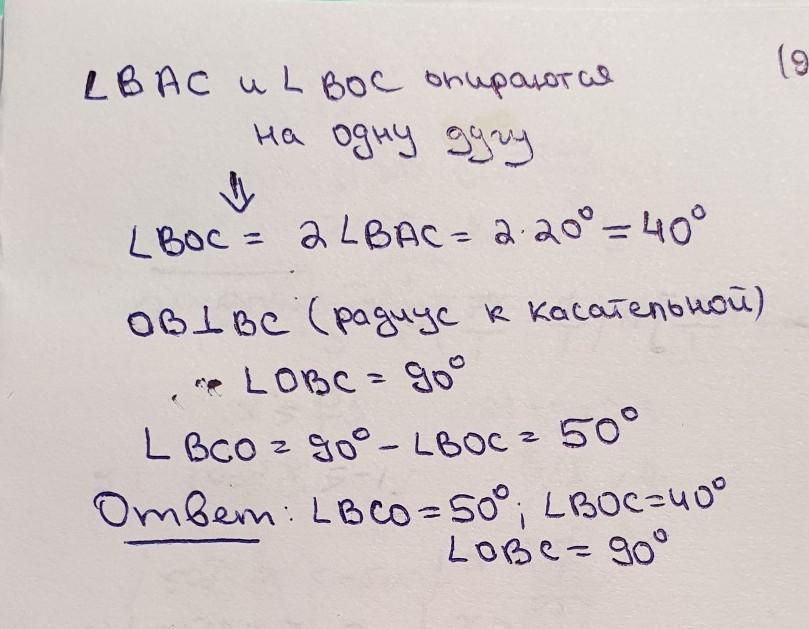 ∠BAC и ∠BOC опираются
(9
на одну дугу
⇓
∠BOC = 2∠BAC = 2·20° = 40°
OB⊥BC (радиус к касательной)
∠OBC = 90°
∠BCO = 90° - ∠BOC = 50°
Ответ: ∠BCO = 50°; ∠BOC = 40°
∠OBC = 90°